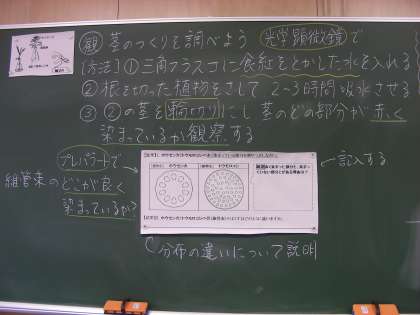 観 茎のつくりを調べよう 光学顕微鏡で
〔方法〕① 三角フラスコに食紅をとかした水を入れる
② 根を切った植物をさして 2〜3時間吸水させる
③ ②の茎を輪切りにし 茎のどの部分が赤く
染まっているか観察する
プレパラートで
維管束のどこが良く
染まっているか?
記入する
ホウセンカ
トウモロコシ
分布の違いについて説明